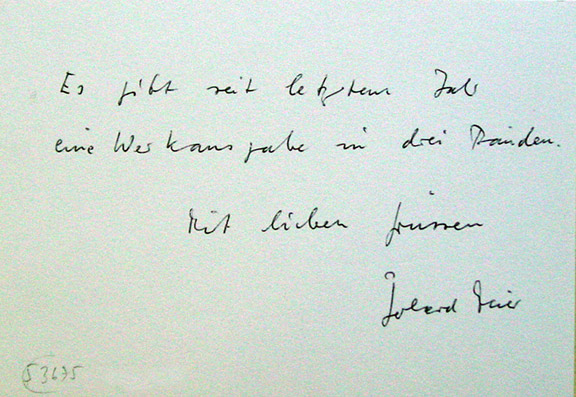 Es gibt seit letztem Jahr
eine Werkausgabe in drei Bänden.
Mit lieben Grüssen
Gerhard Meier
S 3675